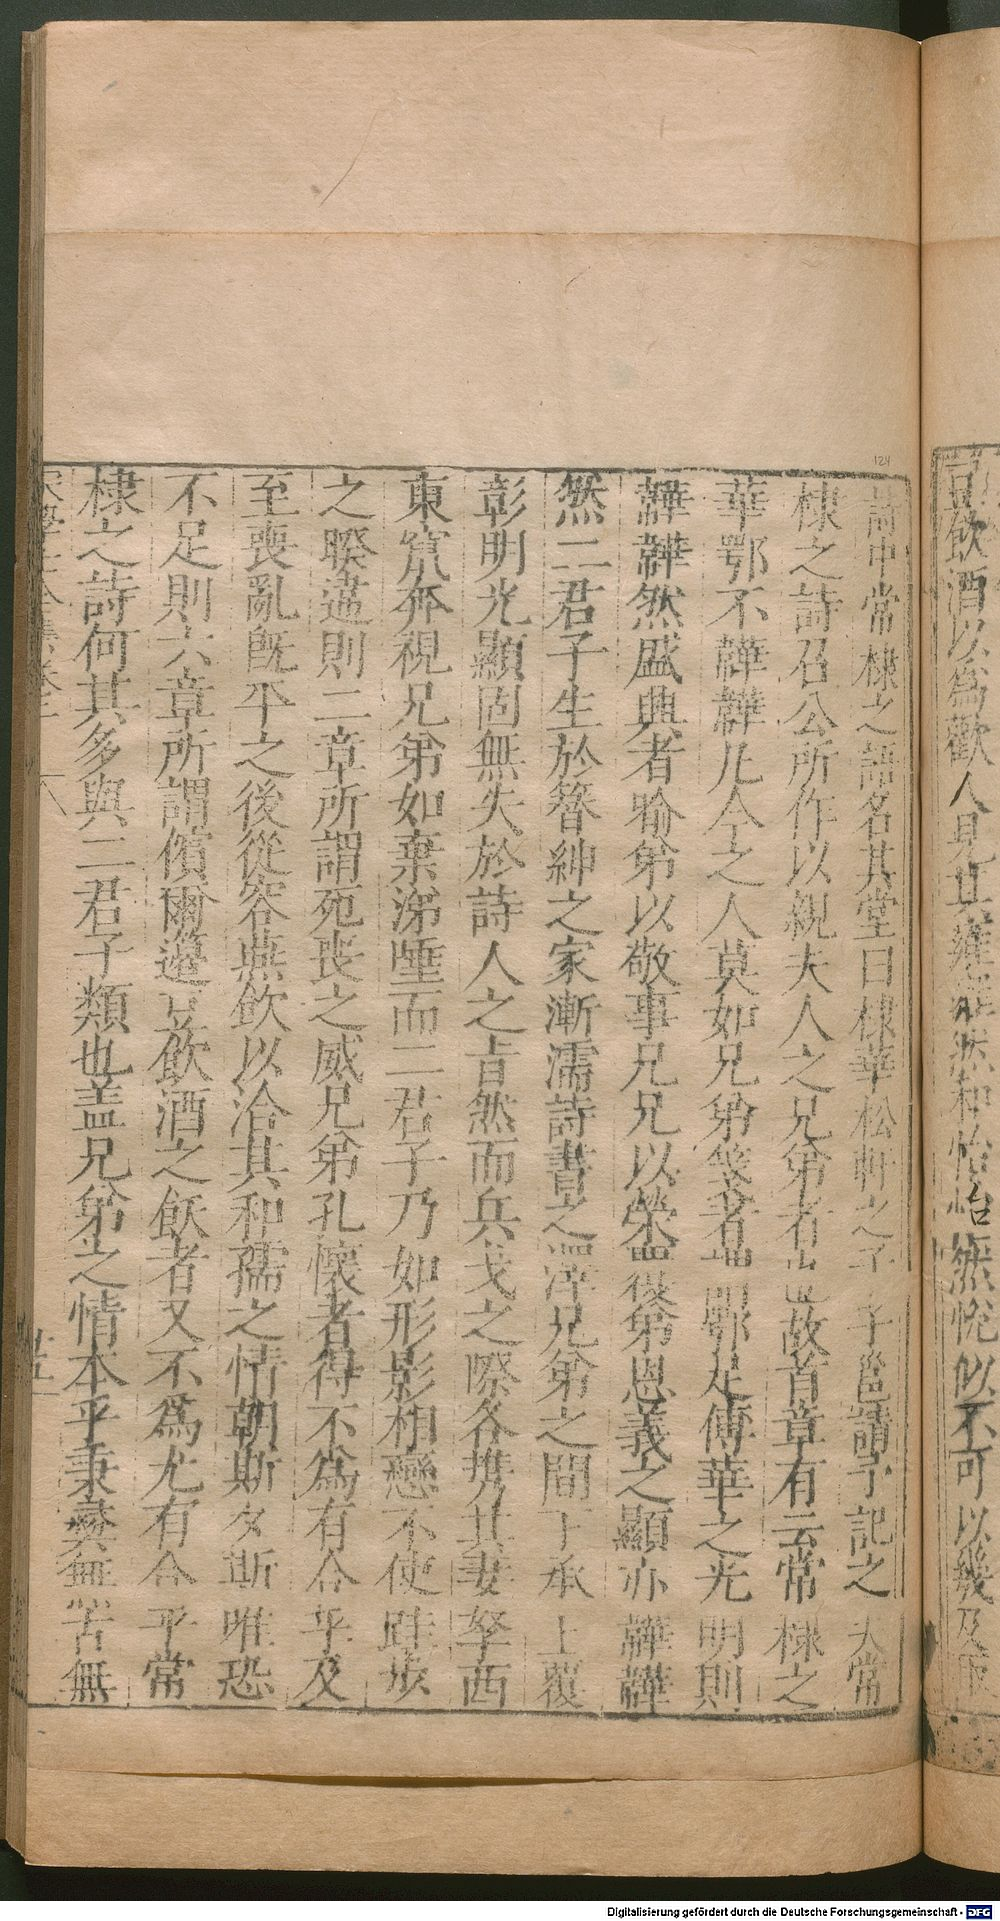 豆飲酒以為歡人見其雍雍然和怡怡無㤪似不可以幾及
詩中常棣之語名其堂曰棣華松軒之子子邕請予記之夫常
棣之詩召公所作以親夫人之兄弟者也故首章有云常棣之
華鄂不韡韡凡今之人莫如兄弟箋者謂鄂足傅華之光明則
韡韡然盛興者喻弟以敬事兄兄以榮覆弟恩義之顯亦韡韡
然二君子生於簪紳之家漸濡詩書之澤兄弟之間下承上覆
彰明光顯固無失於詩人之旨然而兵戈之際各携其妻孥西
東竄奔視兄弟如棄涕唾而二君子乃如形影相戀不使跬步
之暌違則二章所謂死喪之威兄弟孔懷者得不為有合乎及
至喪亂既平之後從容燕飲以洽其和孺之情朝斯夕斯唯恐
不足則六章所謂儐爾籩豆飲酒之飫者又不為尤有合乎常
棣之詩何其多與二君子類也盖兄弟之情本乎秉彝無古無
宋學士全集卷三 廿五
124
Digitalisierung gefördert durch die Deutsche Forschungsgemeinschaft - DFG